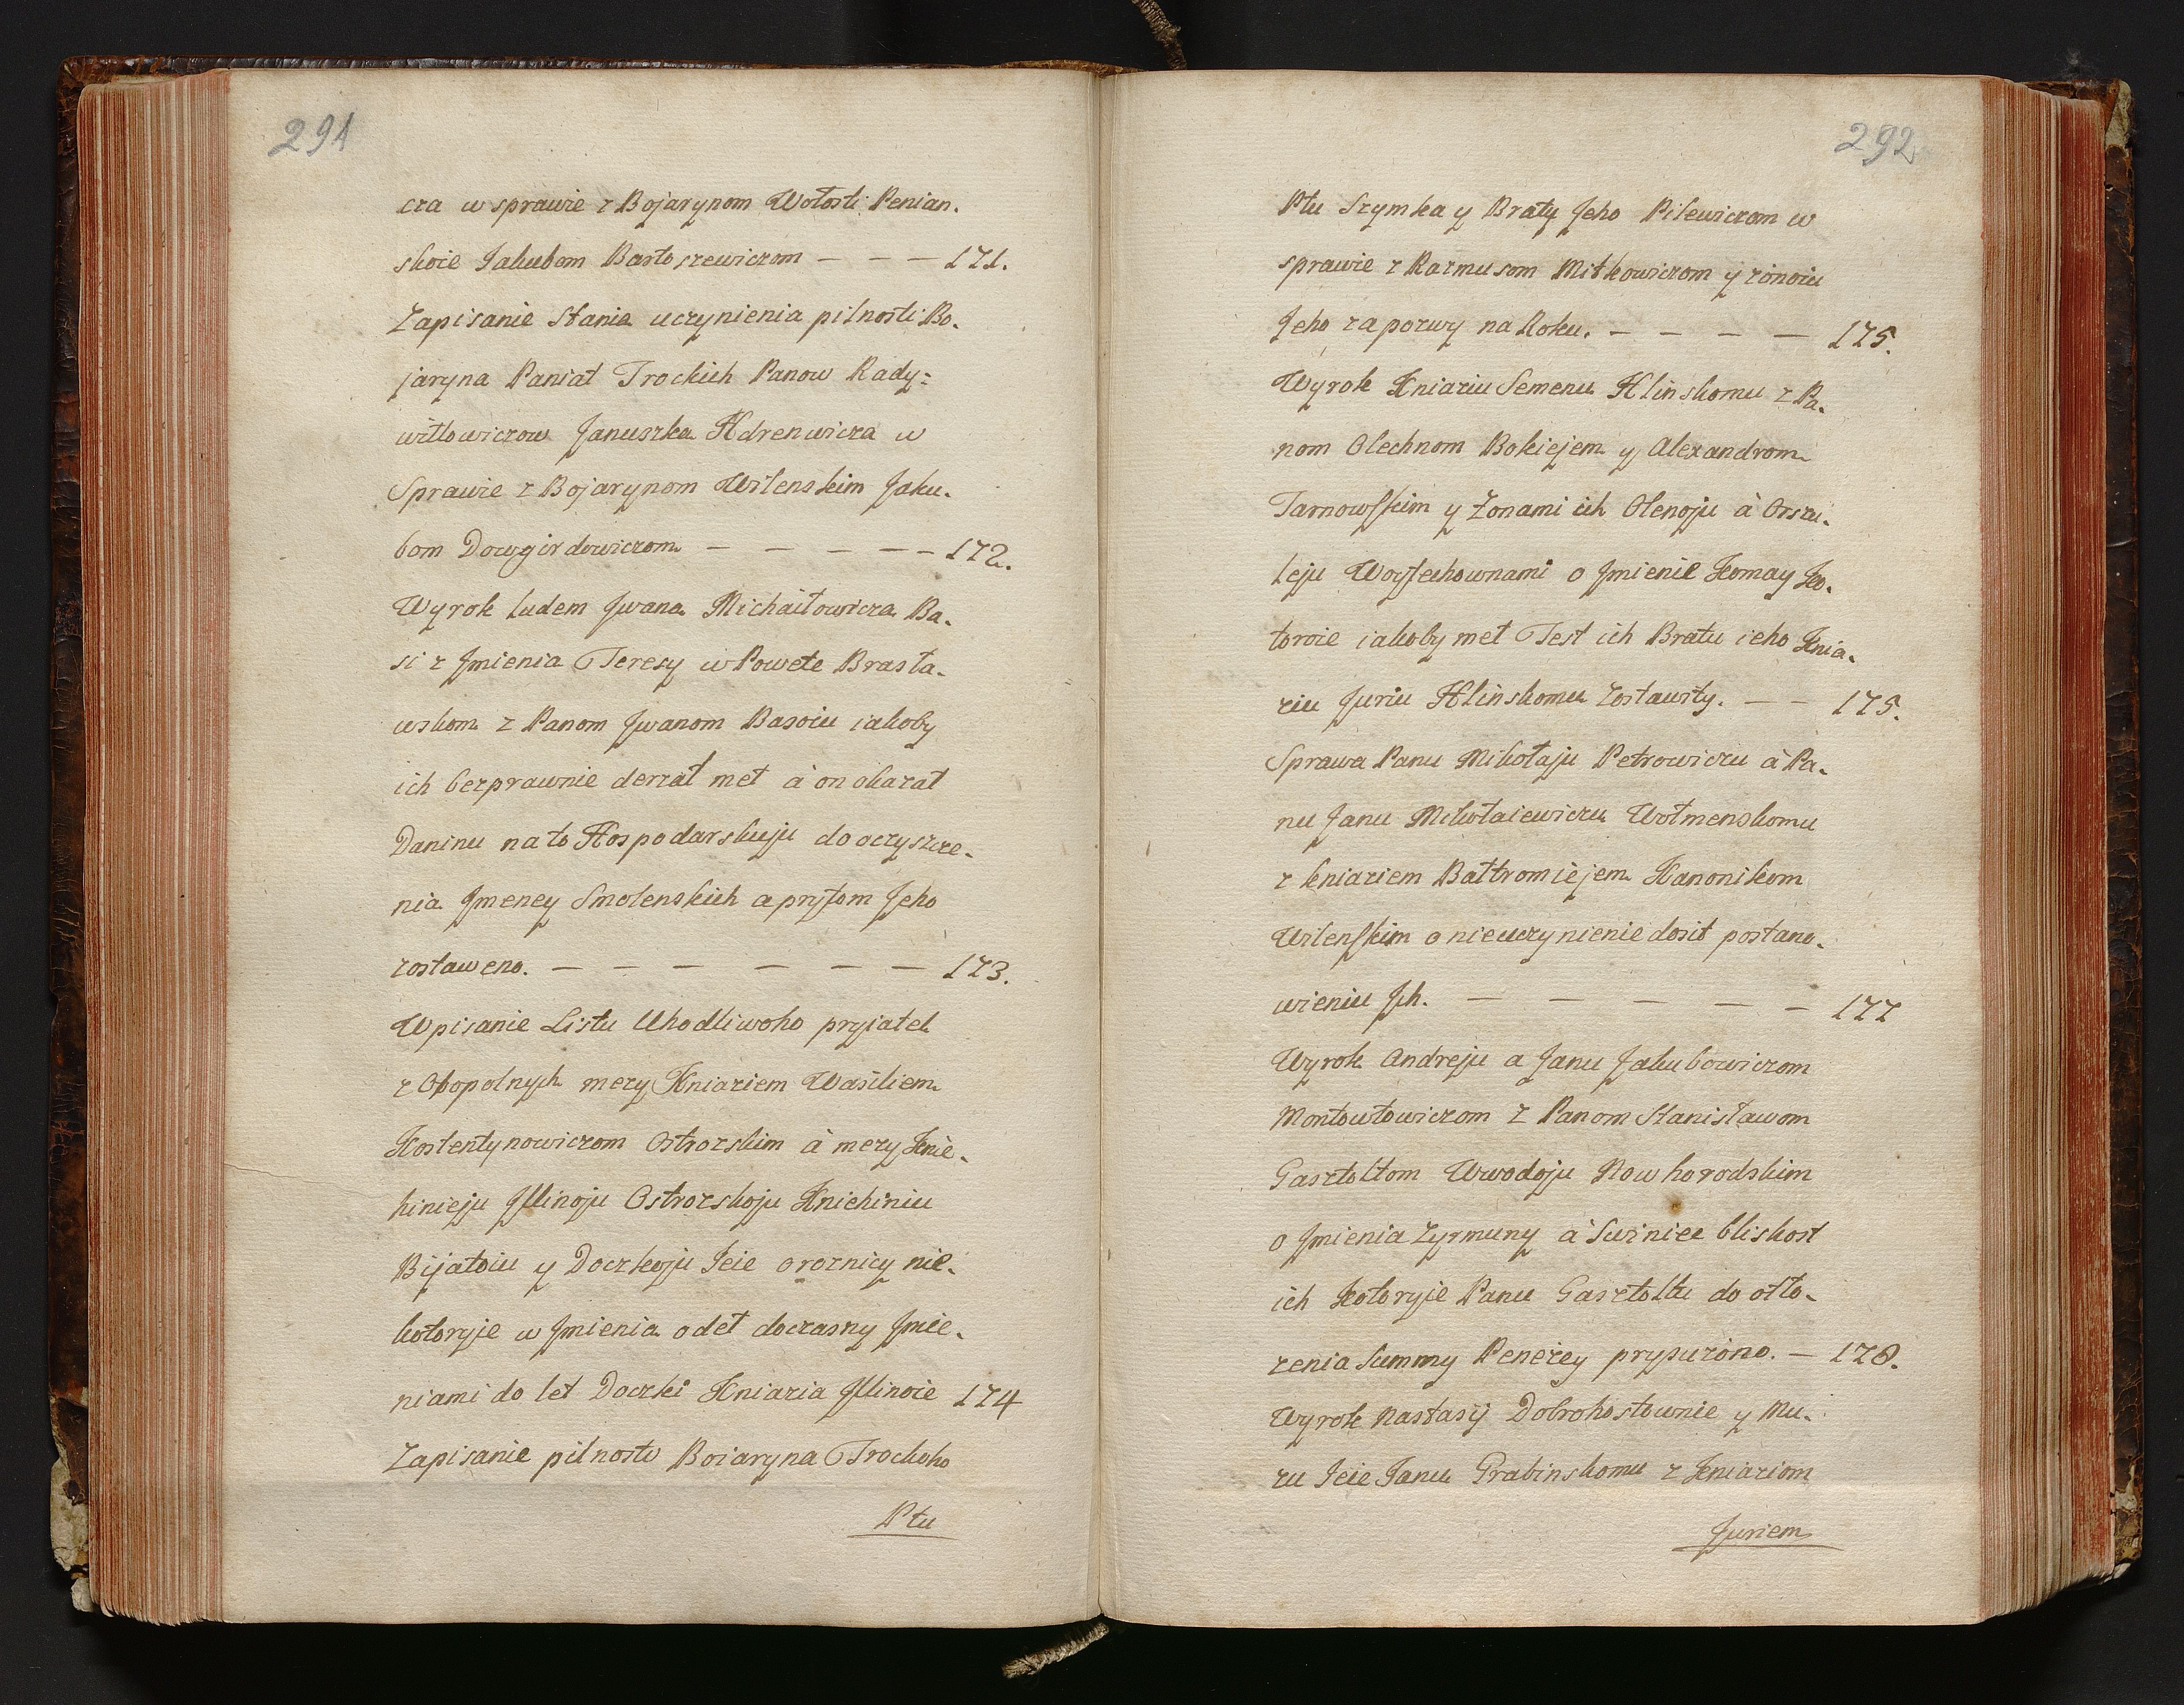 291
cza w sprawie z Bojarynom Wołosti Penian.
skoie Jakubom Bartoszewiczom — — — 171.
Zapisanie Stania uczynienia pilnosti Bo.
jaryna Paniat Trockich Panow Rady:
wiłłowiczow Januszka Hdrenwicza w
Sprawie z Bojarynom Wilenskim Jaku.
bom Dowgirdowiczom — — — — — 172.
Wyrok ludem Jwana Michaiłowicza Ba.
si z Jmienia Teresy w Powete Brasła.
wskom z Panom Jwanom Basoiu iakoby
ich bezprawnie derżał met à on okazał
Daninu na to Hospodarskuju do oczyszcze.
nia Jmeney Smolenskich a prytom Jeho
zostaweno. — — — — — — 173.
Wpisanie Listu Uhodliwoho pryiatel
z Obopolnych mezy Kniaziem Wasiliem
Kostentynowiczom Ostrozskim à mezy Knie.
hinieju Jllinoju Ostrozskoju Kniehiniu
Bijatoiu y Doczkoju Jeie o roznicy nie.
kotoryie w Jmienia odet doczasny Jmie.
niami do let Doczki Kniazia Jllinoie 174
Zapisanie pilnosti Boiaryna Trockoho
Ptu
292
Ptu Szymka y Braty Jeho Pilewiczom w
sprawie z Razmusom Mitkowiczom y zonoiu
Jeho za pozwy na Roku. — — — — 175.
Wyrok Kniaziu Semenu Hlinskomu z Pa.
nom Olechnom Bokiejem y Alexandrom
Tarnowskim y Zonami ich Olenoju à Orszu.
leju Woytechownami o Jmienie Komay Ko.
toroie iakoby met Test ich Bratu ieho Knia.
ziu Juriu Hlinskomu Zostawity. — — 175.
Sprawa Panu Mikołaju Petrowiczu à Pa.
nu Janu Mikołaiewiczu Wołmenskomu
z kniaziem Bałtromiejem Kanonikom
Wilenskim o nieuczynienie dosit postano.
wieniu Jch. — — — — — 177
Wyrok Andreju a Janu Jakubowiczom
Montowtowiczom z Panom Stanisławom
Gasztołtom Wwodoju Nowhorodskim
o Jmienia Zyrmuny à Swiniec bliskost
ich Kotoryie Panu Gasztołtu do otło.
zenia Summy Penezey prypuzono. — 178.
Wyrok Nastasij Dobrohostownie y Mu.
zu Jeie Janu Grabinskomu z Kniaziom
Juriem